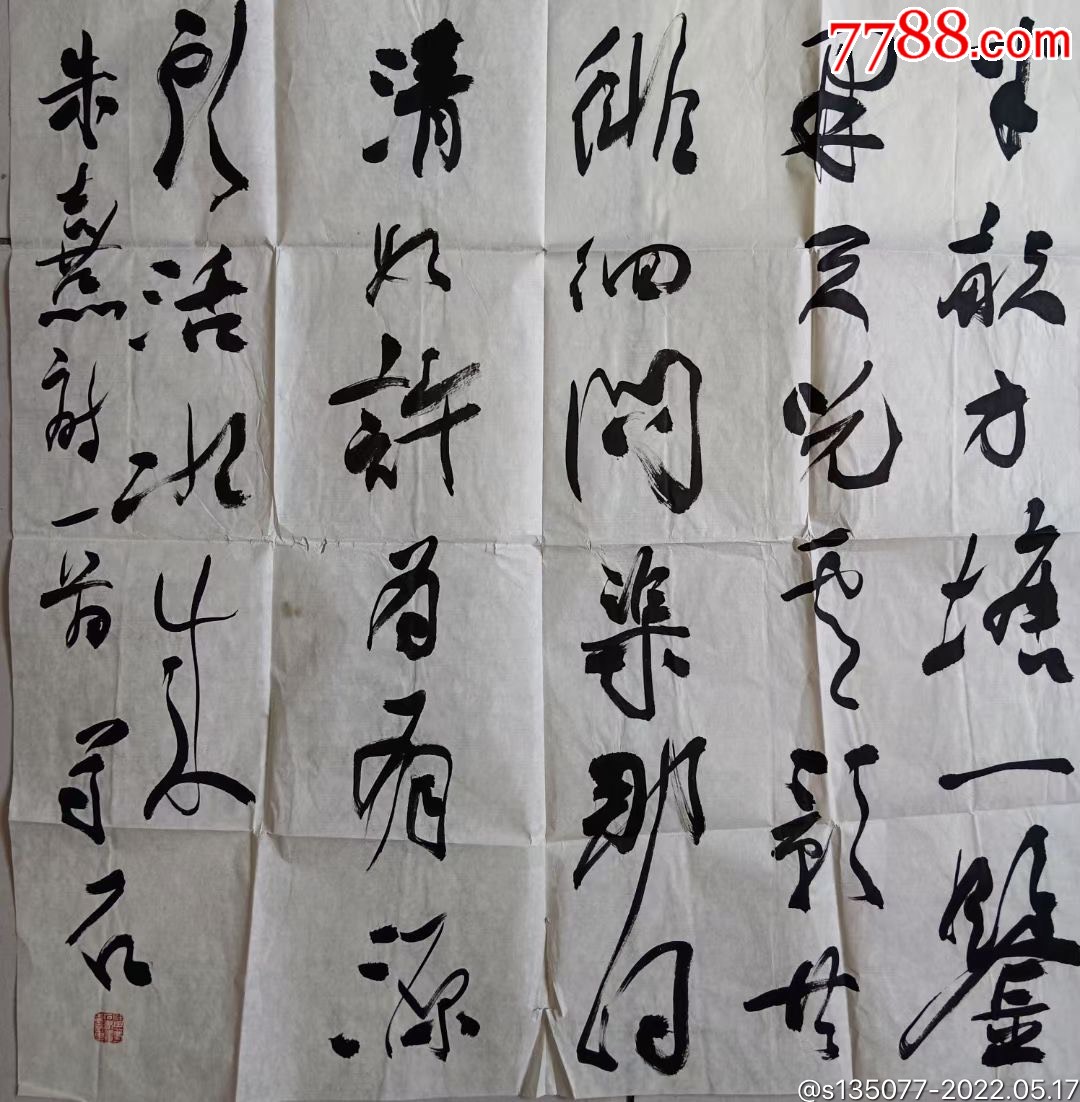 7788.com
半畝方塘一鑒
開天光雲影共
徘徊問渠那得
清如許為有源
頭活水來
朱熹詩一首 石
@s135077-2022.05.17